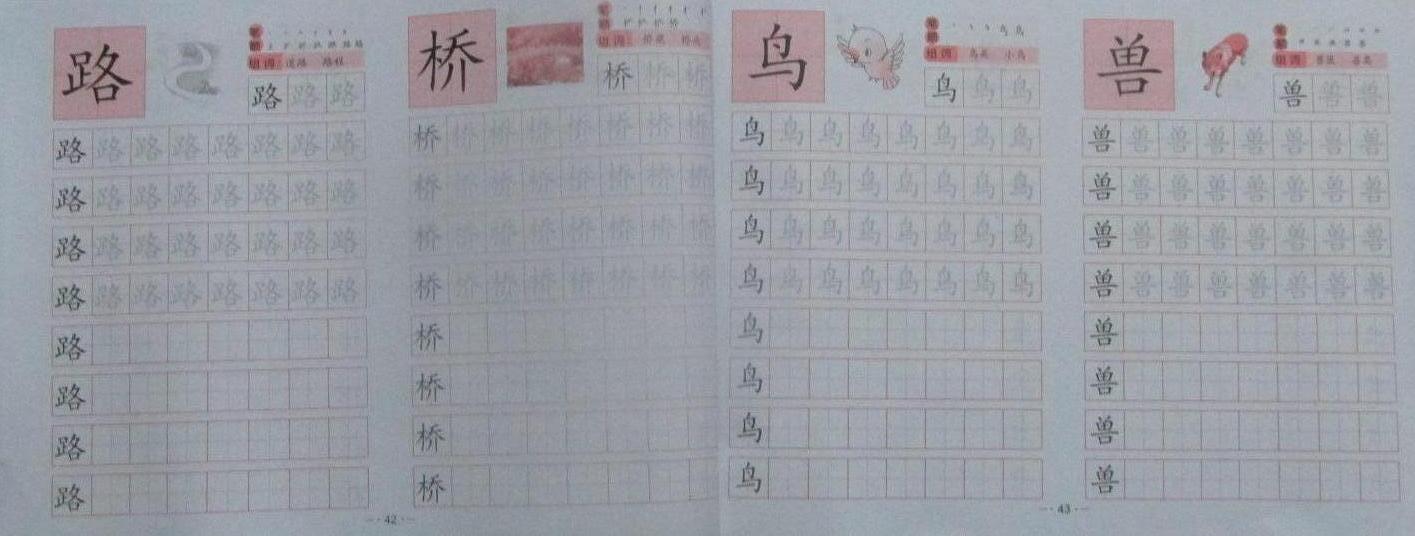 路
笔顺
组词 道路 路程
路路路
路路路路路路路路
路路路路路路路路
路路路路路路路路
路路路路路路路路
路
路
路
路
桥
笔顺
组词 桥梁 桥头
桥桥桥
桥桥桥桥桥桥桥桥
桥桥桥桥桥桥桥桥
桥桥桥桥桥桥桥桥
桥桥桥桥桥桥桥桥
桥
桥
桥
桥
42
鸟
笔顺
组词 小鸟
鸟鸟鸟
鸟鸟鸟鸟鸟鸟鸟鸟
鸟鸟鸟鸟鸟鸟鸟鸟
鸟鸟鸟鸟鸟鸟鸟鸟
鸟鸟鸟鸟鸟鸟鸟鸟
鸟
鸟
鸟
鸟
兽
笔顺
组词
兽兽兽
兽兽兽兽兽兽兽兽
兽兽兽兽兽兽兽兽
兽兽兽兽兽兽兽兽
兽兽兽兽兽兽兽兽
兽
兽
兽
兽
43